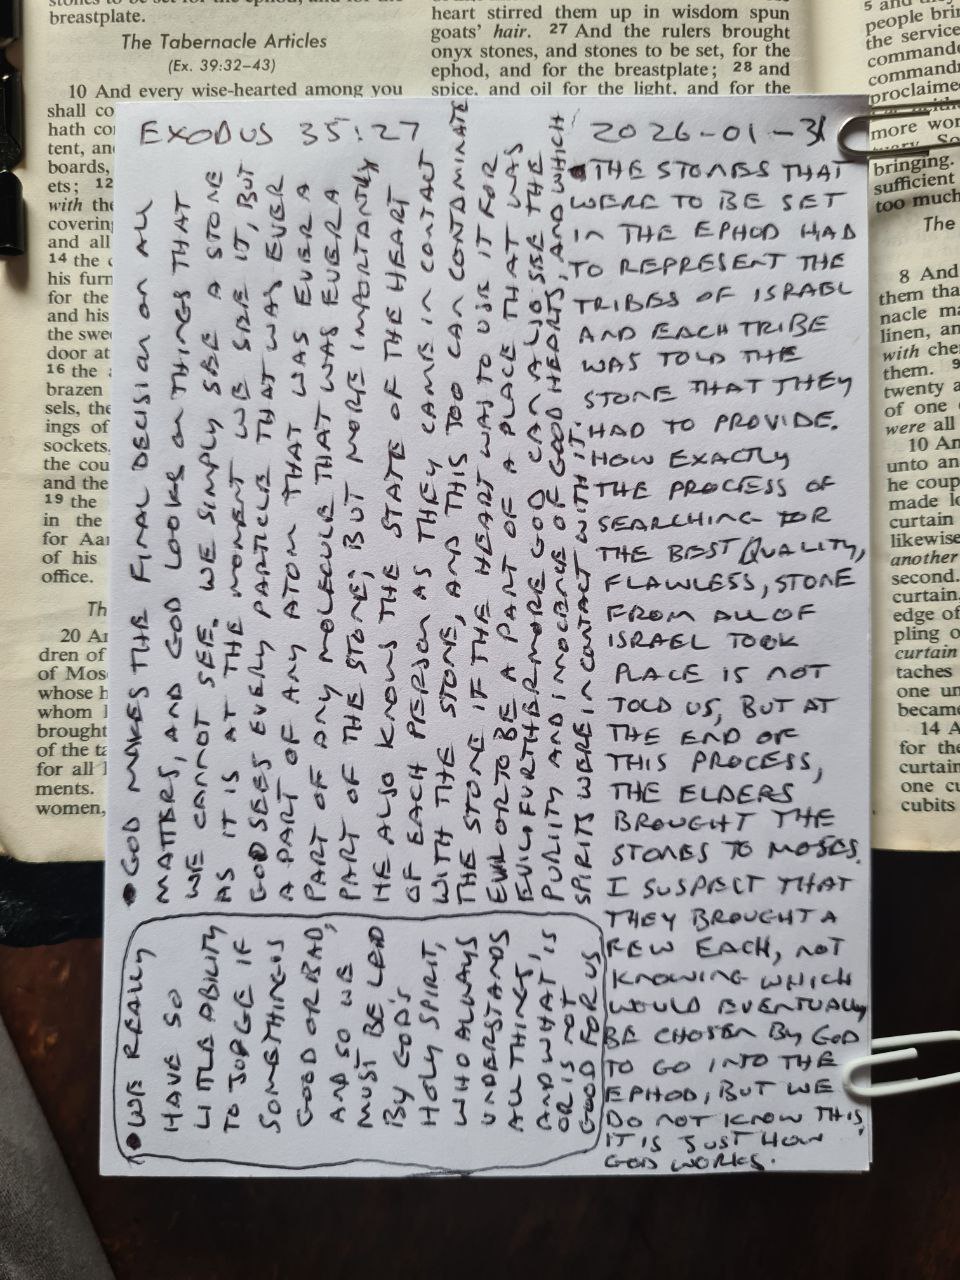 breastplate.
The Tabernacle Articles
(Ex. 39:32–43)
10 And every wise-hearted among you
shall co
hath co
tent, an
boards,
ets; 12
with the
coverin
and all
14 the
his furn
for the
and his
the swe
door at
16 the
brazen
sels, the
ings of
sockets,
the cou
and the
19 the
in the
for Aar
of his
office.
Th
20 An
dren of
of Mos
whose h
whom
brought
of the ta
for all
ments.
women,
heart stirred them up in wisdom spun
goats' hair. 27 And the rulers brought
onyx stones, and stones to be set, for the
ephod, and for the breastplate; 28 and
spice, and oil for the light, and for the
EXODUS 35:27
2026-01-31
THE STONES THAT
WERE TO BE SET
IN THE EPHOD HAD
TO REPRESENT THE
TRIBES OF ISRAEL
AND EACH TRIBE
WAS TOLD THE
STONE THAT THEY
HAD TO PROVIDE.
HOW EXACTLY
THE PROCESS OF
SEARCHING FOR
THE BEST QUALITY,
FLAWLESS, STONE
FROM ALL OF
ISRAEL TOOK
PLACE IS NOT
TOLD US, BUT AT
THE END OF
THIS PROCESS,
THE ELDERS
BROUGHT THE
STONES TO MOSES.
I SUSPECT THAT
THEY BROUGHT A
FEW EACH, NOT
KNOWING WHICH
WOULD EVENTUALLY
BE CHOSEN BY GOD
TO GO INTO THE
EPHOD, BUT WE
DO NOT KNOW THIS.
IT IS JUST HOW
GOD WORKS.
• GOD MAKES THE FINAL DECISION ON ALL
MATTERS, AND GOD LOOKS ON THINGS THAT
WE CANNOT SEE. WE SIMPLY SEE A STONE
AS IT IS AT THE MOMENT WE SEE IT, BUT
GOD SEES EVERY PARTICLE THAT WAS EVER
A PART OF ANY ATOM THAT WAS EVER A
PART OF ANY MOLECULE THAT WAS EVER A
PART OF THE STONE; BUT MORE IMPORTANTLY
HE ALSO KNOWS THE STATE OF THE HEART
OF EACH PERSON AS THEY CAME IN CONTACT
WITH THE STONE, AND THIS TOO CAN CONTAMINATE
THE STONE IF THE HEART WAS TO USE IT FOR
EVIL OR TO BE A PART OF A PLACE THAT WAS
EVIL. FURTHERMORE GOD CAN ALSO SEE THE
PURLITY AND INOCENCE OF GOOD HEARTS, AND WHICH
SPIRITS WERE IN CONTACT WITH IT.
• WE REALLY
HAVE SO
LITLE ABILITY
TO JUDGE IF
SOMETHING IS
GOOD OR BAD,
AND SO WE
MUST BE LEAD
BY GOD'S
HOLY SPIRIT,
WHO ALWAYS
UNDERSTANDS
ALL THINGS,
AND WHAT IS
OR IS NOT
GOOD FOR US
5 and
people brin
the service
command
command
proclaime
more wor
bringing.
sufficient
too much
The
8 And
them tha
nacle ma
linen, an
with che
them.
twenty a
of one
were all
10 An
unto an
he coup
made lo
curtain
likewise
another
second.
curtain,
edge of
pling o
curtain
taches
one un
becam
14 A
for the
curtain
one cu
cubits